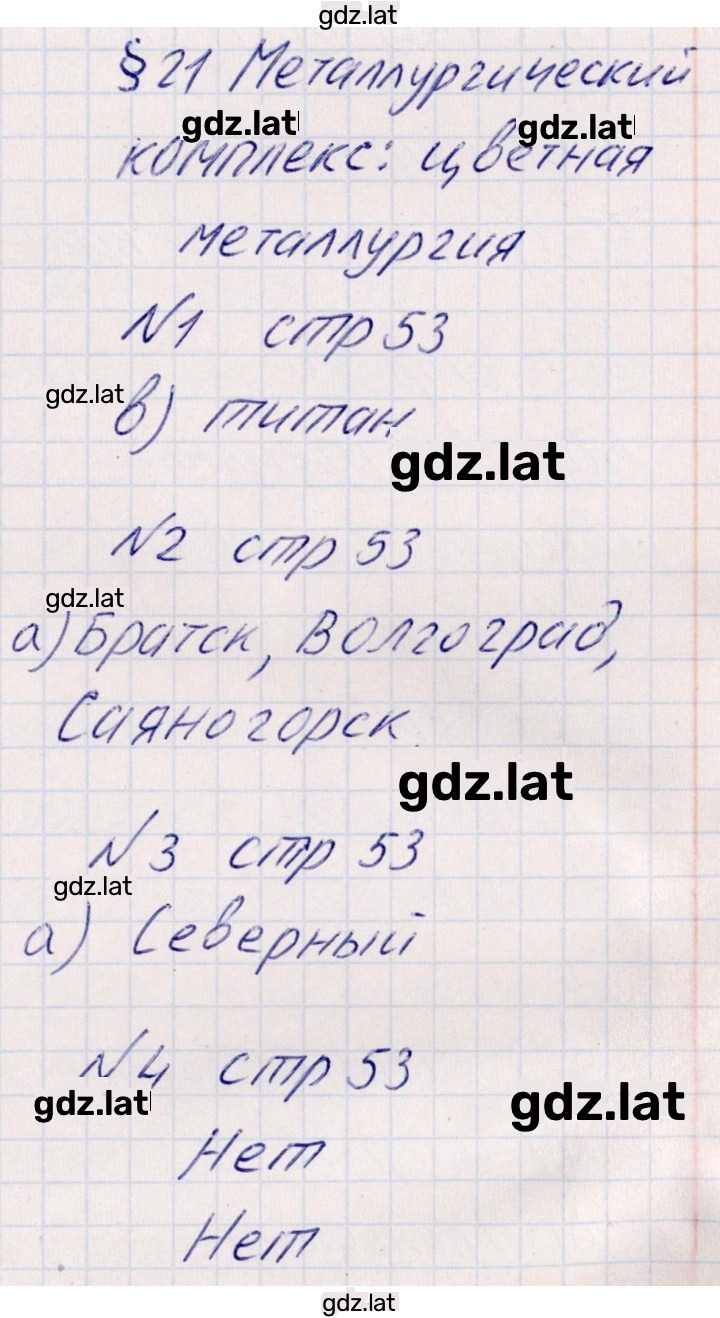 gdz.lat
§ 21 Металлургический
gdz.lat gdz.lat
комплекс: цветная
металлургия
N1 стр 53
gdz.lat
в) титан
gdz.lat
N2 стр 53
gdz.lat
а) Братск, Волгоград,
Саяногорск
gdz.lat
N3 стр 53
gdz.lat
а) Северный
N4 стр 53
gdz.lat gdz.lat
Нет
Нет
gdz.lat